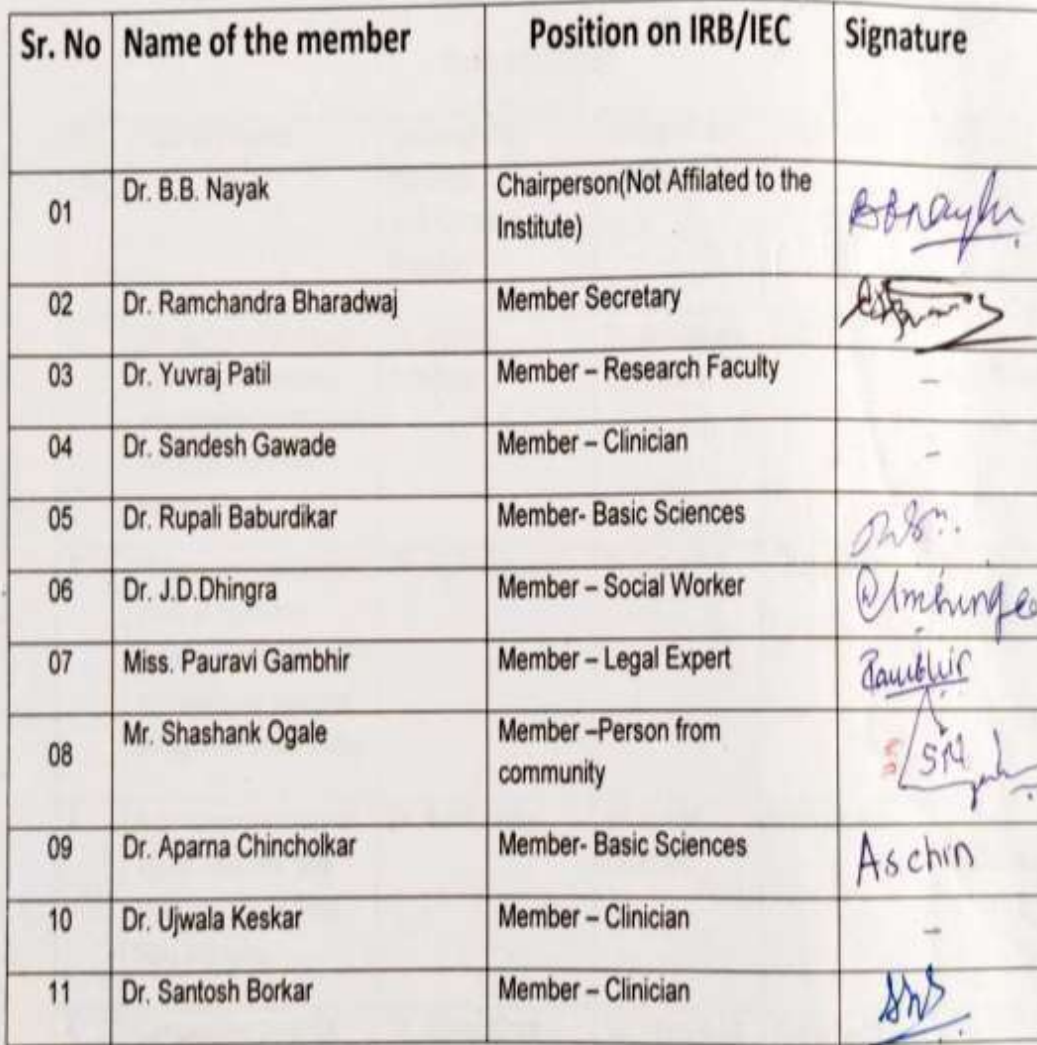 Sr. No Name of the member Position on IRB/IEC Signature
01 Dr. B.B. Nayak Chairperson(Not Affilated to the
Institute)
02 Dr. Ramchandra Bharadwaj Member Secretary
03 Dr. Yuvraj Patil Member – Research Faculty –
04 Dr. Sandesh Gawade Member – Clinician –
05 Dr. Rupali Baburdikar Member- Basic Sciences
06 Dr. J.D.Dhingra Member – Social Worker
07 Miss. Pauravi Gambhir Member – Legal Expert
08 Mr. Shashank Ogale Member –Person from
community
09 Dr. Aparna Chincholkar Member- Basic Sciences Aschin
10 Dr. Ujwala Keskar Member – Clinician –
11 Dr. Santosh Borkar Member – Clinician